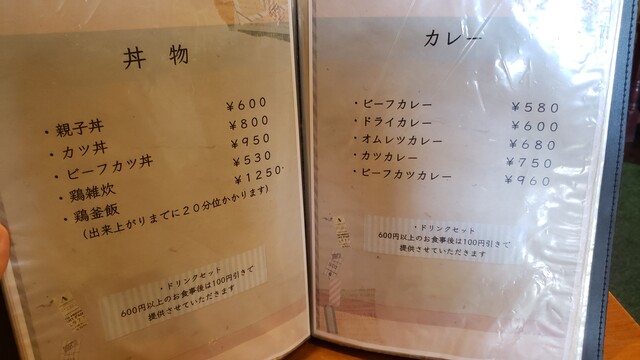 丼 物
・親子丼 ￥600
・カツ丼 ￥800
・ビーフカツ丼 ￥950
・鶏雑炊 ￥530
・鶏釜飯 ￥1250
(出来上がりまでに20分位かかります)
・ドリンクセット
600円以上のお食事後は100円引きで
提供させていただきます
カレー
・ビーフカレー ￥580
・ドライカレー ￥600
・オムレツカレー ￥680
・カツカレー ￥750
・ビーフカツカレー ￥960
・ドリンクセット
600円以上のお食事後は100円引きで
提供させていただきます